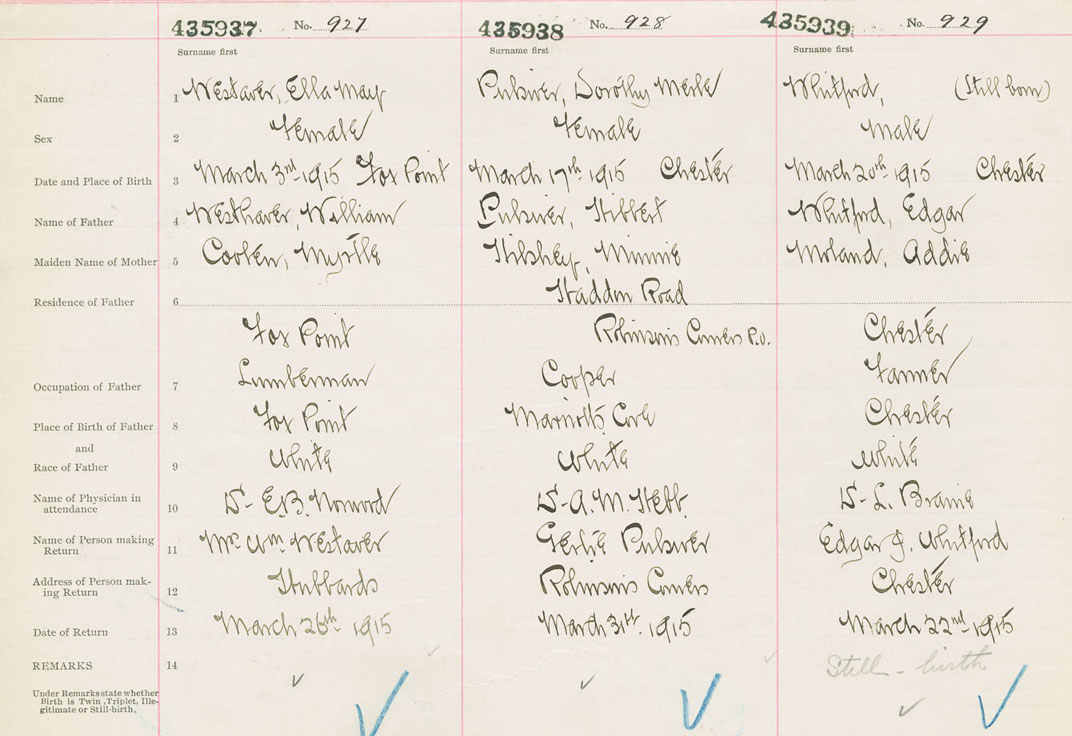 435937. No. 927 435938 No. 928 435939. No. 929
Surname first Surname first Surname first
Name 1 Westaver, Ella May Pulsiver, Dorothy Merle Whitford, (Still born)
Sex 2 Female Female Male
Date and Place of Birth 3 March 3rd 1915 Fox Point March 17th 1915 Chester March 20th 1915 Chester
Name of Father 4 Westhaver, William Pulsiver, Hibbert Whitford, Edgar
Maiden Name of Mother 5 Coolen, Myrtle Hilshey, Minnie Moland, Addie
Haddon Road
Residence of Father 6
Fox Point Robinsons Corners P.O. Chester
Occupation of Father 7 Lumberman Cooper Farmer
Place of Birth of Father 8 Fox Point Marriotts Cove Chester
and
Race of Father 9 White White White
Name of Physician in
attendance 10 Dr E.B. Norwood Dr A.M. Hebb. Dr L. Braine
Name of Person making
Return 11 Mrs Wm Westaver Gertie Pulsiver Edgar J. Whitford
Address of Person mak-
ing Return 12 Hubbards Robinsons Corners Chester
Date of Return 13 March 26th 1915 March 31st. 1915 March 22nd 1915
REMARKS 14 Still-birth
Under Remarks state whether
Birth is Twin, Triplet, Ille-
gitimate or Still-birth.